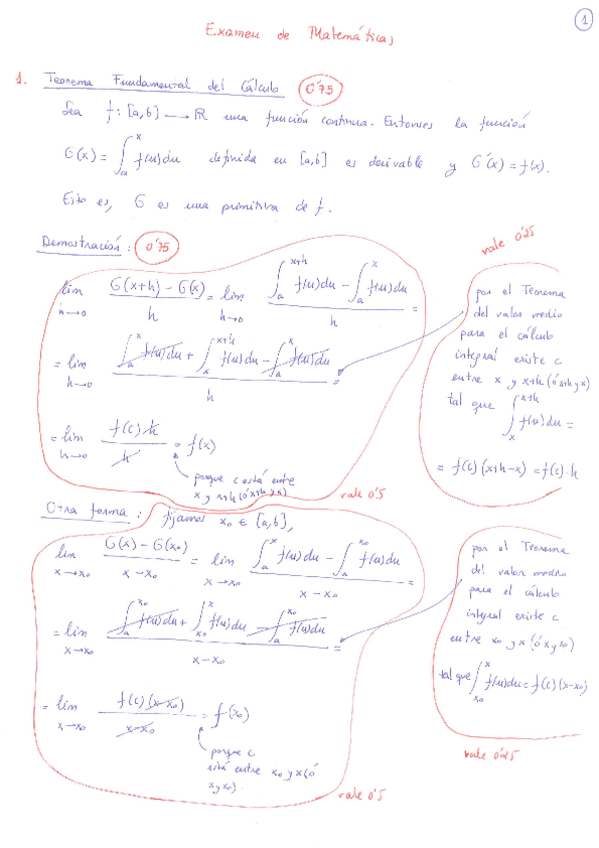 1
Examen de Matemáticas
1. Teorema Fundamental del Cálculo 0'75
Sea f: [a,b] → ℝ una función continua. Entonces la función
G(x) = ∫ₐˣ f(u)du definida en [a,b] es derivable y G'(x) = f(x).
Esto es, G es una primitiva de f.
Demostración: 0'75
lim_{h→0} (G(x+h) − G(x))/h = lim_{h→0} (∫ₐ^{x+h} f(u)du − ∫ₐˣ f(u)du)/h =
= lim_{h→0} (∫ₐˣ f(u)du + ∫ₓ^{x+h} f(u)du − ∫ₐˣ f(u)du)/h =
= lim_{h→0} (f(c) h)/h = f(x)
porque c está entre
x y x+h (ó x+h y x)
vale 0'5
vale 0'25
por el Teorema
del valor medio
para el cálculo
integral existe c
entre x y x+h (ó x+h y x)
tal que ∫ₓ^{x+h} f(u)du =
= f(c)(x+h−x) = f(c)·h
Otra forma: fijamos x₀ ∈ [a,b],
lim_{x→x₀} (G(x) − G(x₀))/(x − x₀) = lim_{x→x₀} (∫ₐˣ f(u)du − ∫ₐ^{x₀} f(u)du)/(x − x₀) =
= lim_{x→x₀} (∫ₐ^{x₀} f(u)du + ∫_{x₀}^{x} f(u)du − ∫ₐ^{x₀} f(u)du)/(x − x₀) =
= lim_{x→x₀} (f(c)(x−x₀))/(x−x₀) = f(x₀)
porque c
está entre x₀ y x (ó
x y x₀).
vale 0'5
por el Teorema
del valor medio
para el cálculo
integral existe c
entre x₀ y x (ó x y x₀)
tal que ∫_{x₀}^{x} f(u)du = f(c)(x−x₀)
vale 0'25